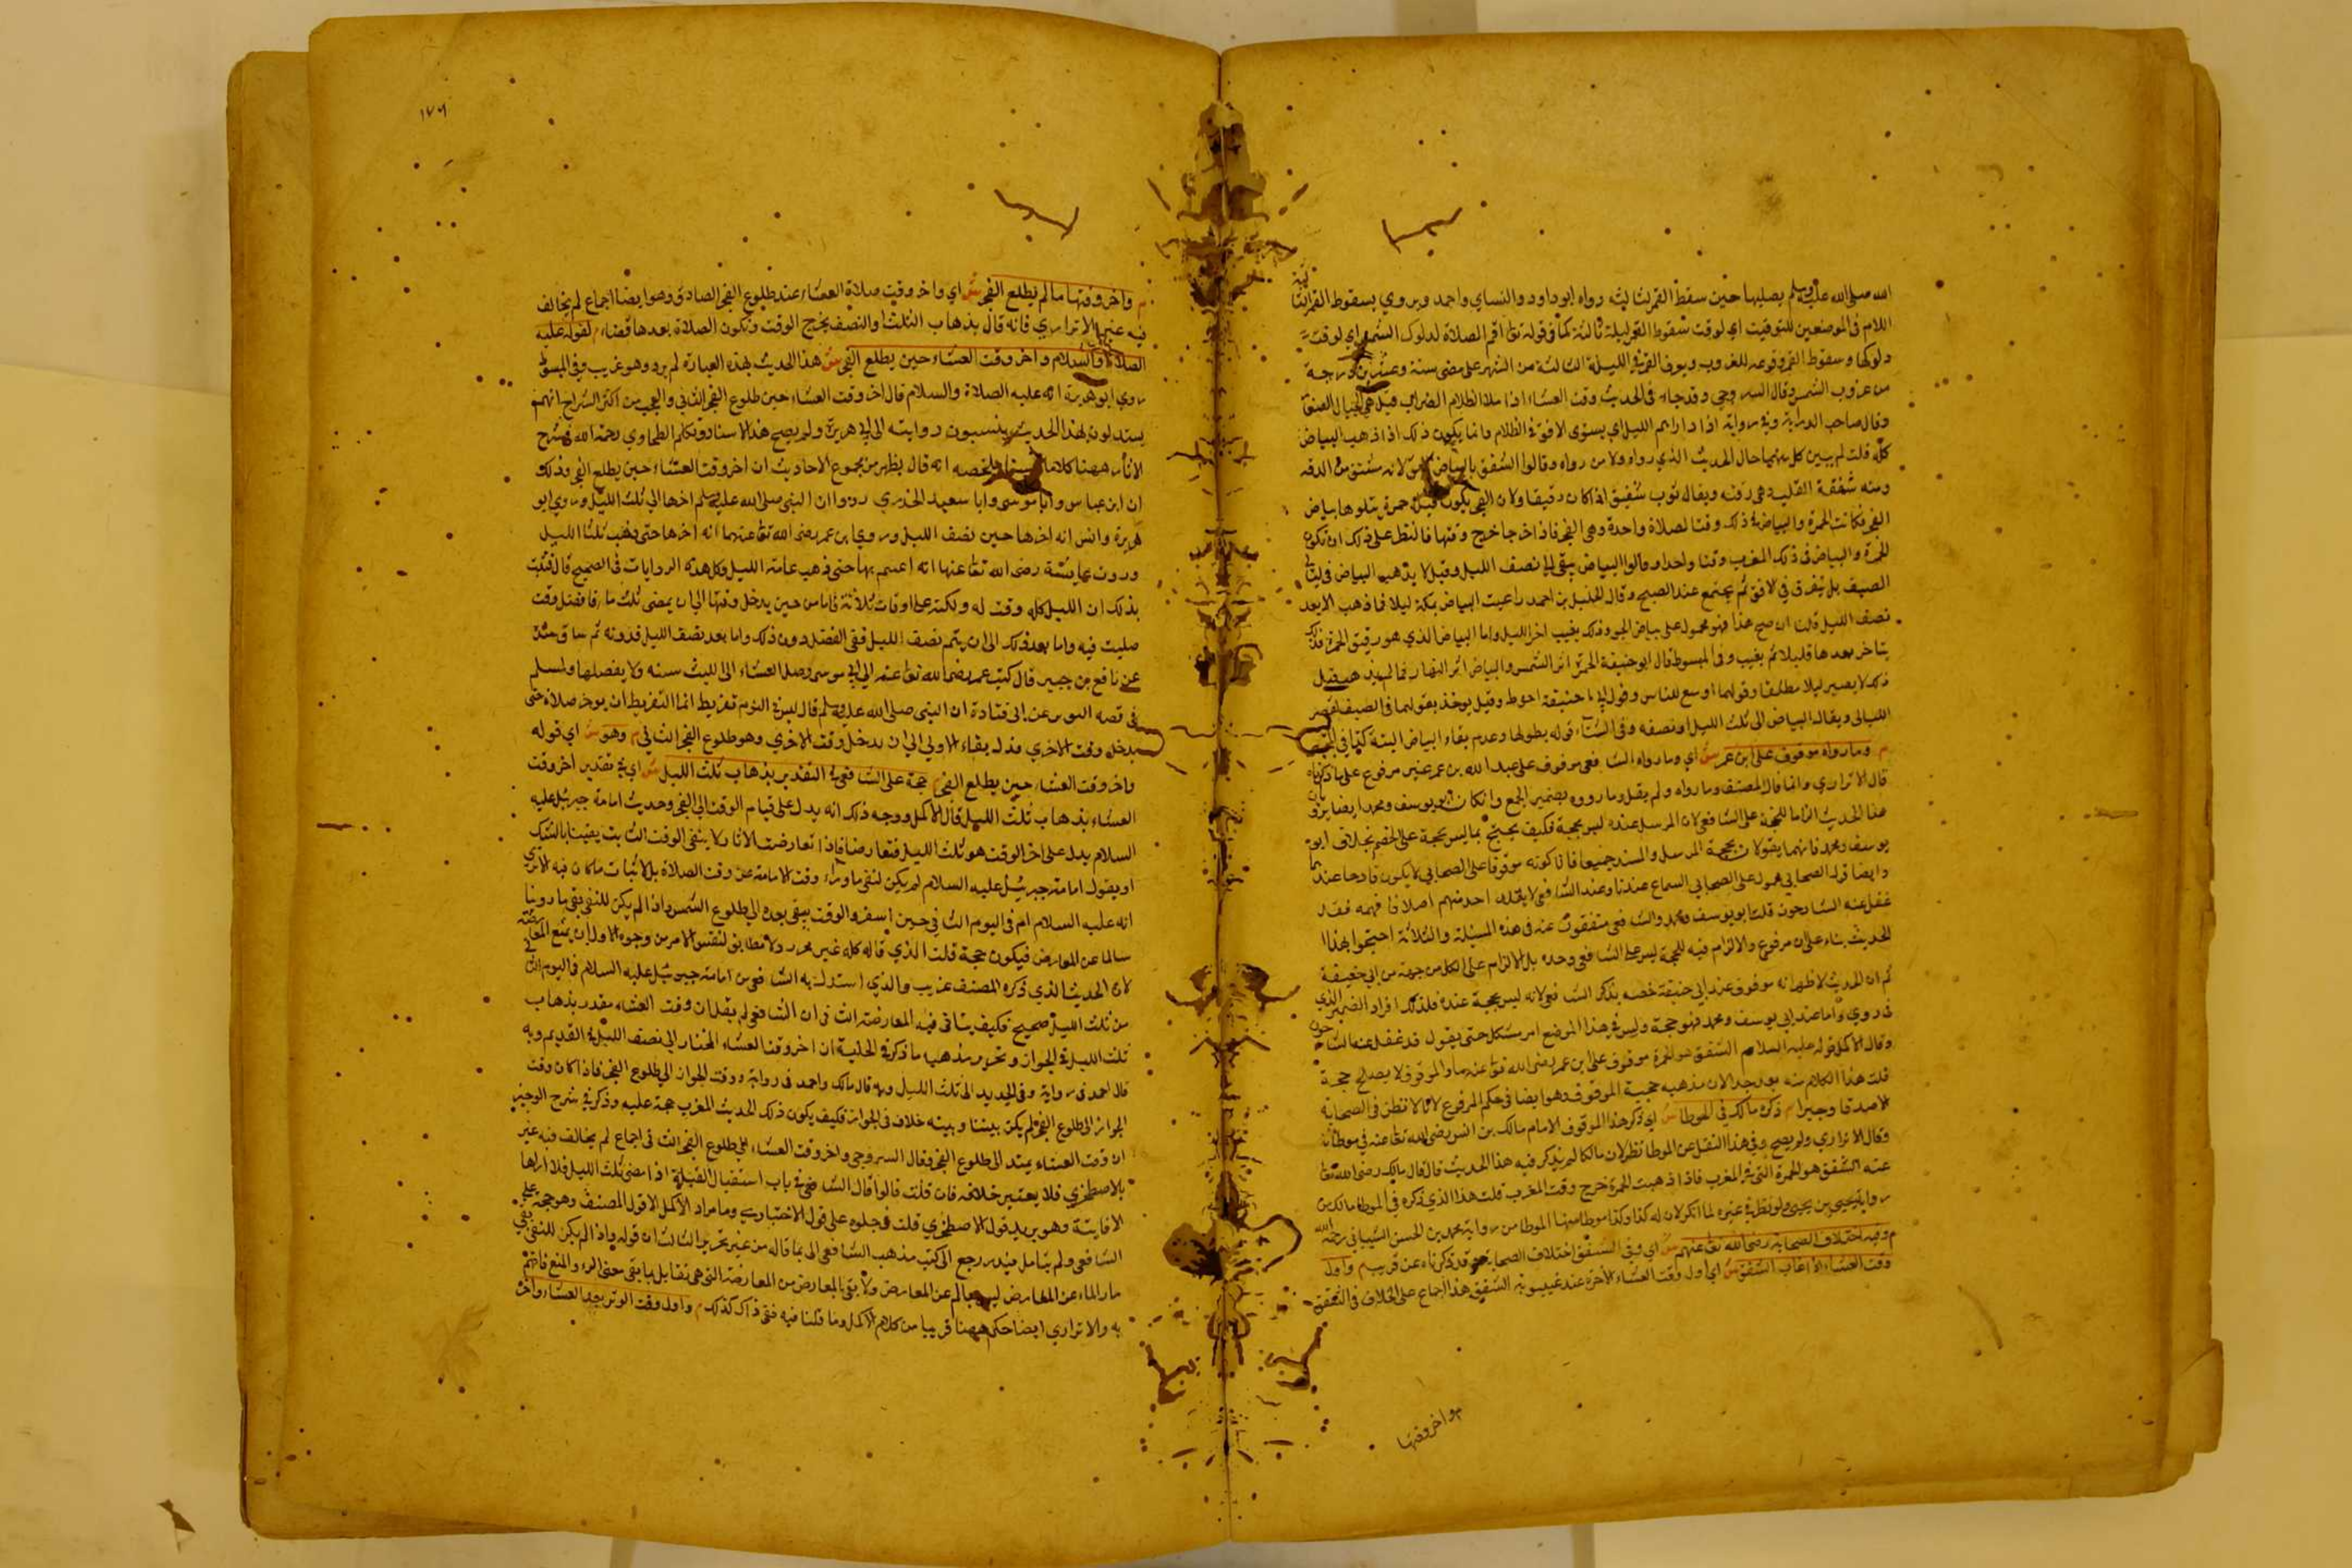 الله صلى الله عليه وسلم يصليها حين سقط القمر لثالثه رواه ابو داود والنساي واحمد ويروي بسقوط القمر
اللام في الموضعين للتوقيت اي لوقت سقوط القمر ليلة ثالثة كما في قوله تعا اقم الصلاة لدلوك الشمس اي لوقت
دلوكها وسقوط القمر وقوعه للغروب ويعرف القمر في الليلة الثالثة من الشهر على مضى ستة وعشرين درجة
من غروب الشمس وقال السروجي وقد جاء في الحديث وقت العشاء اذا ملا الظلام الضراب قيل هي الجبال الصغار
وقال صاحب الدراية وفي رواية اذا ادلهم الليل اي يسوى الافق في الظلام وانما يكون ذلك اذا ذهب البياض
كله قلت لم يبين كل منهما حال الحديث الذي رواه ولا من رواه وقالوا الشفق بالبياض لانه مشتق من الرقة
ومنه شفقة القلب وهي رقته ويقال ثوب شفيق اذا كان رقيقا ولان الفجر يكون قبله حمرة يتلوها بياض
الفجر فكانت الحمرة والبياض في ذلك وقتا لصلاة واحدة وهى الفجر فاذا خرجا خرج وقتها فالنظر على ذلك ان تكون
الحمرة والبياض في ذلك المغرب وقتا واحدا وقالوا البياض يبقى الى نصف الليل وقيل لا يذهب البياض في ليالي
الصيف بل يتفرق في الافق ثم يجتمع عند الصبح وقال الخليل بن احمد راعيت البياض بمكة ليلا فما ذهب الا بعد
نصف الليل قلت ان صح هذا فهو محمول على بياض الجو وذلك يغيب اخر الليل واما البياض الذي هو رقيق الحمرة فذلك
يتاخر بعدها قليلا ثم يغيب وفي المبسوط قال ابو حنيفة الحمرة اثر الشمس والبياض اثر النهار فما لم يذهب كل
ذلك لا يصير ليلا مطلقا وقولهما اوسع للناس وقول ابي حنيفة احوط وقيل يوخذ بقولهما في الصيف لقصر
الليالي وبقاء البياض الى ثلث الليل او نصفه وفي الشتاء بقوله لطولها وعدم بقاء البياض
م وما رواه موقوف على ابن عمر ش اي وما رواه الشافعي موقوف على عبد الله بن عمر غير مرفوع على ما ذكرناه
قال الاترازي وانما قال المصنف وما رواه ولم يقل وما رووه بضمير الجمع وان كان ابو يوسف ومحمد ايضا يرويان
هذا الحديث الزاما للحجة على الشافعي لان المرسل عنده ليس بحجة فكيف يحتج بما ليس بحجة على الخصم بخلاف ابي
يوسف ومحمد فانهما يقولان بحجية المرسل والمسند جميعا فاذا كونه موقوفا على الصحابي لا يكون قادحا عندهما
وايضا قول الصحابي محمول على الصحابي السماع عندنا وعند الشافعي لا يقلد احد منهم اصلا فافهمه فقد
غفل عنه الشارحون قلت ابو يوسف ومحمد والشافعي متفقون عنه في هذه المسئلة والثلاثة احتجوا بهذا
الحديث بناء على انه مرفوع والالزام فيه للحجة ليس على الشافعي وحده بل الالزام على الكل من جهة من ابي حنيفة
ثم ان الحديث لما ظهر انه موقوف عند ابي حنيفة خصه بذكر الشافعي لانه ليس بحجة عنده فلذلك افراد الضمير الذي
في روي واما عند ابي يوسف ومحمد فهو حجة وليس في هذا الموضع امر مشكل حتى يقول قد غفل عنه الشارحون
وقال الاكمل قوله عليه السلام الشفق هو الحمرة موقوف على ابن عمر رضى الله تعا عنهما والموقوف لا يصلح حجة
قلت هذا الكلام منه بعيد جدا لان مذهبه حجية الموقوف وهو ايضا في حكم المرفوع لانا لا نظن في الصحابة
الا صدقا وخيرا م ذكره مالك في الموطا ش اي ذكر هذا الموقوف الامام مالك بن انس رضى الله تعا عنه في موطأه
وقال الاترازي ولم يصح وفي هذا النقل عن الموطا نظر لان مالكا لم يذكر فيه هذا الحديث قال قال مالك رضى الله تعا
عنه الشفق هو الحمرة التي في المغرب فاذا ذهبت الحمرة خرج وقت المغرب قلت هذا الذي ذكره في الموطا مالك من
رواية يحيى بن يحيى ولو نظر في غيره لما انكر لان له كذا وكذا موطا منها الموطا من رواية محمد بن الحسن الشيباني رحمه الله
م وفيه اختلاف الصحابة رضى الله تعا عنهم ش اي وفي الشفق اختلاف الصحابة وقد ذكرناه عن قريب م واول
وقت العشاء اذا غاب الشفق ش اي اول وقت العشاء الاخرة عند غيبوبة الشفق هذا اجماع على الخلاف في الشفق
م واخر وقتها
١٧٦
م واخر وقتها ما لم يطلع الفجر ش اي واخر وقت صلاة العشاء عند طلوع الفجر الصادق وهو ايضا اجماع لم يخالف
فيه غير الاترازي فانه قال بذهاب الثلث او النصف يخرج الوقت وتكون الصلاة بعدها قضاء م لقوله عليه
الصلاة والسلام واخر وقت العشاء حين يطلع الفجر ش هذا الحديث بهذه العبارة لم يرد وهو غريب وفي المبسوط
روي ابو هريرة انه عليه الصلاة والسلام قال اخر وقت العشاء حين طلوع الفجر الثاني والعجب من اكثر الشراح انهم
يستدلون بهذا الحديث وينسبون روايته الى ابي هريرة ولم يصح هذا الاسناد وتكلم الطحاوي رحمه الله في شرح
الاثار ههنا كلاما ملخصه انه قال يظهر من مجموع الاحاديث ان اخر وقت العشاء حين يطلع الفجر وذلك
ان ابن عباس وابا موسى وابا سعيد الخدري رووا ان النبي صلى الله عليه وسلم اخرها الى ثلث الليل وروي ابو
هريرة وانس انه اخرها حين نصف الليل وروي ابن عمر رضى الله تعا عنهما انه اخرها حتى ذهب ثلثا الليل
وروت عايشة رضى الله تعا عنها انه اعتم بها حتى ذهب عامة الليل وكل هذه الروايات في الصحيح قال فثبت
بذلك ان الليل كله وقت له ولكنه على اوقات ثلاثة فاما من حين يدخل وقتها الى ان يمضى ثلث الليل فافضل وقت
صليت فيه واما بعد ذلك الى ان يتم نصف الليل ففي الفضل دون ذلك واما بعد نصف الليل فدونه ثم ساق سنده
عن نافع بن جبير قال كتب عمر رضى الله تعا عنه الى ابي موسى وصل العشاء اى الليل شئت ولا تغفلها ولمسلم
في قصة النوم عن ابي قتادة ان النبي صلى الله عليه وسلم قال ليس في النوم تفريط انما التفريط ان يوخر صلاة حتى
يدخل وقت الاخري فدل بقاء الاولى الى ان يدخل وقت الاخري وهو طلوع الفجر الثاني م وهو ش اي قوله
واخر وقت العشاء حين يطلع الفجر م حجة على الشافعي في التقدير بذهاب ثلث الليل ش اي في تقدير اخر وقت
العشاء بذهاب ثلث الليل قال الاكمل ووجه ذلك انه يدل على قيام الوقت الى الفجر وحديث امامة جبرئيل عليه
السلام يدل على اخر الوقت هو ثلث الليل فتعارضا فاذا تعارضت الاثار لا ينقى الوقت الثابت يقينا بالشك
او يقول امامة جبرئيل عليه السلام لم يكن لنفى ما وراء وقت الامامة عن وقت الصلاة بل لاثبات ما كان فيه الا تري
انه عليه السلام ام في اليوم الثاني حين اسفر والوقت يبقى بعده الى طلوع الشمس واذا لم يكن للنفي بقي ما روينا
سالما عن المعارض فيكون حجة قلت الذي قاله كله غير محرر ولا مطابق لنفس الامر من وجوه الاول ان يمنع المعارضة
لان الحديث الذي ذكره المصنف غريب والذي استدل به الشافعي من امامة جبرئيل عليه السلام في اليوم الثاني
من ثلث الليل صحيح فكيف يتاتى فيه المعارضة الثاني ان الشافعي لم يقل ان وقت العشاء مقدر بذهاب
ثلث الليل في الجواز وتحرير مذهبه ما ذكر في الحلية ان اخر وقت العشاء المختار الى نصف الليل في القديم وبه
قال احمد في رواية وفي الجديد الى ثلث الليل وبه قال مالك واحمد في رواية ووقت الجواز الى طلوع الفجر فاذا كان وقت
الجواز الى طلوع الفجر لم يكن بيننا وبينه خلاف في الجواز فكيف يكون ذلك الحديث المغرب حجة عليه وذكر في شرح الوجيز
ان وقت العشاء يمتد الى طلوع الفجر وقال السروجي واخر وقت العشاء الى طلوع الفجر الثاني اجماع لم يخالف فيه غير
الاصطخري فلا يعتبر خلافه فان قلت قالوا قال الشافعي في باب استقبال القبلة اذا مضى ثلث الليل فلا اراها
الا فايتة وهو يريد قول الاصطخري قلت حملوه على قول الاختياري وما مراد الاكمل الا قول المصنف وهو حجة على
الشافعي ولم يتامل فيه ورجع الى كتب مذهب الشافعي اتى بما قاله من غير تحرير الثالث ان قوله واذا لم يكن للنفي بقي
ما رواه عن المعارض ليس بسالم عن المعارض ولا بقى بالمعارض من المعارضة التي هي تقابل ما بقى معنى الرد والمنع فافهم
به والاترازي ايضا حكم ههنا قريبا من كلام الاكمل وما قلنا فيه ففي ذاك كذلك م واول وقت الوتر بعد العشاء واخره